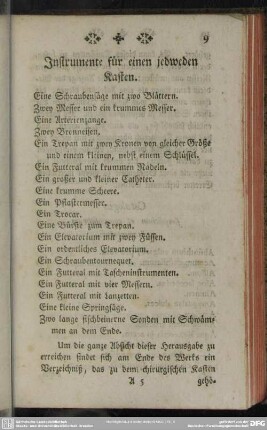 9
Instrumente für einen jedweden
Kasten.
Eine Schraubensäge mit zwo Blättern.
Zwey Messer und ein krummes Messer.
Eine Arterienzange.
Zwey Brenneisen.
Ein Trepan mit zwey Kronen von gleicher Größe
und einem kleinen, nebst einem Schlüssel.
Ein Futteral mit krummen Nadeln.
Ein großer und kleiner Catheter.
Eine krumme Scheere.
Ein Pflastermesser.
Ein Trocar.
Eine Bürste zum Trepan.
Ein Elevatorium mit zwey Füssen.
Ein ordentliches Elevatorium.
Ein Schraubentourneguet.
Ein Futteral mit Tascheninstrumenten.
Ein Futteral mit vier Messern.
Ein Futteral mit Lanzetten.
Eine kleine Springsäge.
Zwo lange fischbeinerne Sonden mit Schwäm-
men an dem Ende.
Um die ganze Absicht dieser Herausgabe zu
erreichen findet sich am Ende des Werks ein
Verzeichniß, das zu dem chirurgischen Kasten
A 5 gehö-